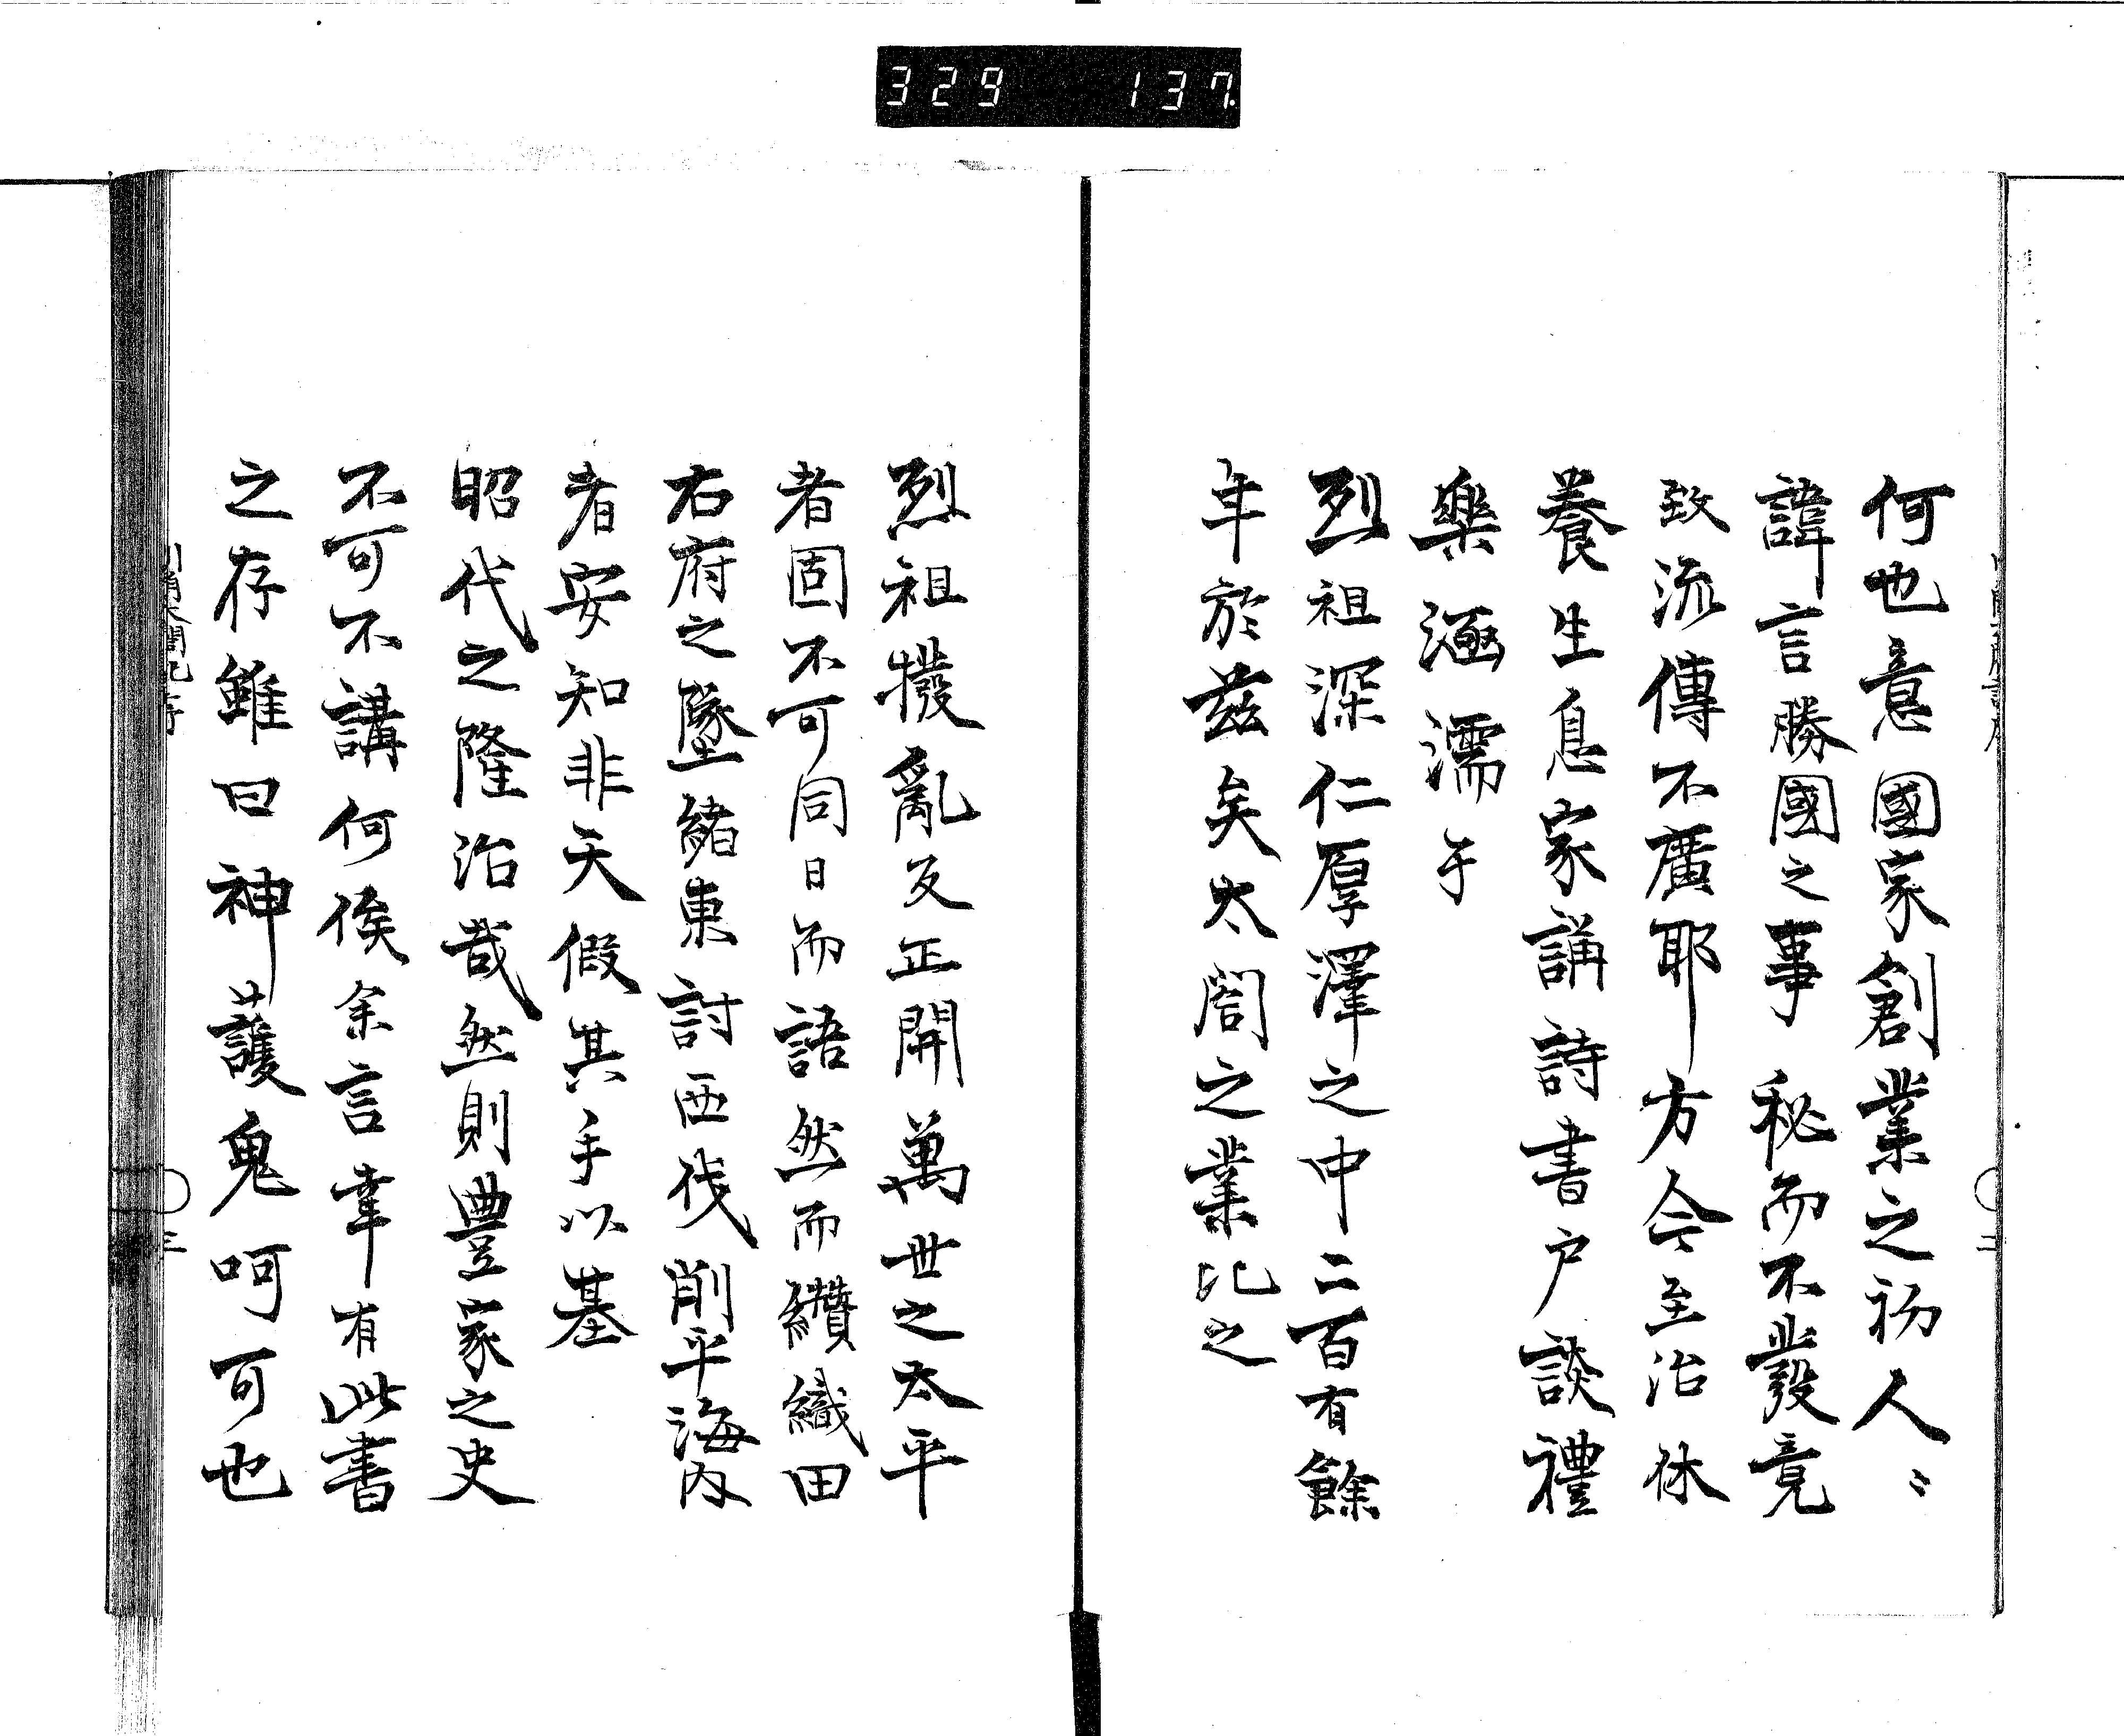 329 137
何也意國家創業之初人〻
諱言勝國之事秘而不發竟
致流傳不廣耶方今至治休
養生息家講詩書户談禮
樂涵濡于
烈祖深仁厚澤之中二百有餘
年於茲矣太閤之業比之
烈祖撥亂反正開萬世之太平
者固不可同日而語然而纘織田
右府之墜緒東討西伐削平海內
者安知非天假其手以基
昭代之隆治哉然則豐家之史
不可不講何俟余言韋有此書
之存雖曰神護鬼呵可也
三